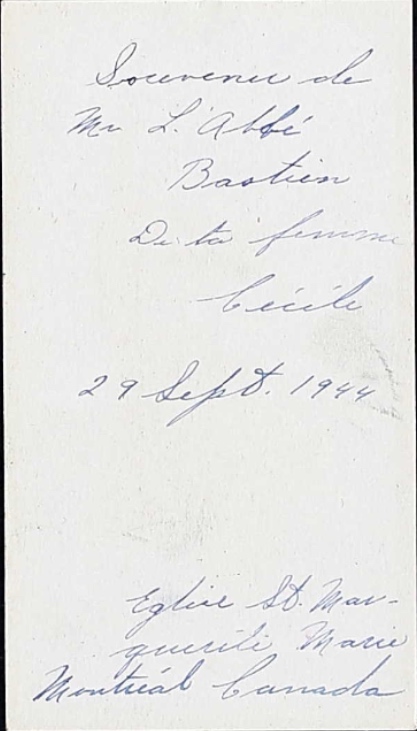 Souvenir de
Mr L'Abbé
Bastien
De ta femme
Cécile
29 Sept. 1944
Eglise St. Mar-
guerite Marie
Montréal Canada